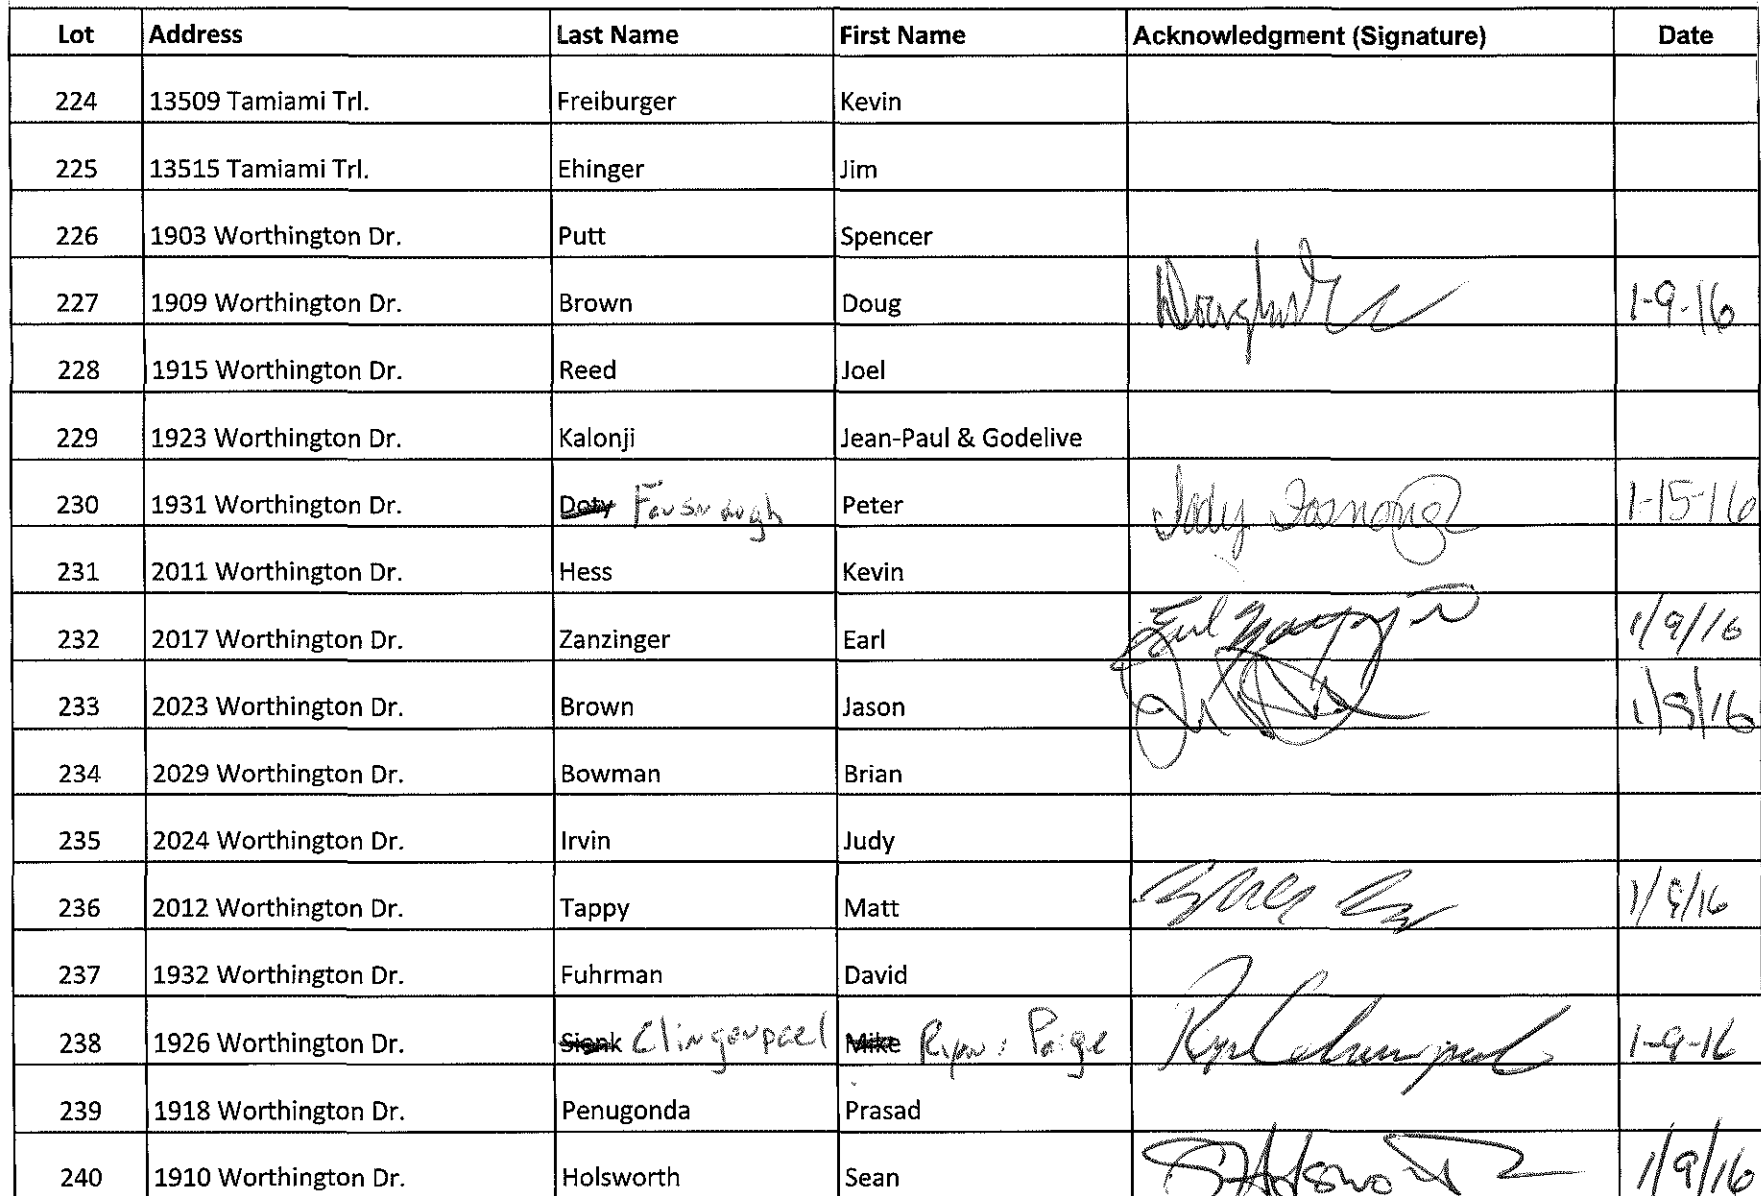 Lot Address Last Name First Name Acknowledgment (Signature) Date
224 13509 Tamiami Trl. Freiburger Kevin
225 13515 Tamiami Trl. Ehinger Jim
226 1903 Worthington Dr. Putt Spencer
227 1909 Worthington Dr. Brown Doug 1-9-16
228 1915 Worthington Dr. Reed Joel
229 1923 Worthington Dr. Kalonji Jean-Paul & Godelive
230 1931 Worthington Dr. Doty Peter 1-15-16
231 2011 Worthington Dr. Hess Kevin
232 2017 Worthington Dr. Zanzinger Earl 1/9/16
233 2023 Worthington Dr. Brown Jason 1/9/16
234 2029 Worthington Dr. Bowman Brian
235 2024 Worthington Dr. Irvin Judy
236 2012 Worthington Dr. Tappy Matt
237 1932 Worthington Dr. Fuhrman David
238 1926 Worthington Dr. Clingenpeel Mike Ryan Paige 1-9-16
239 1918 Worthington Dr. Penugonda Prasad
240 1910 Worthington Dr. Holsworth Sean 1/9/16